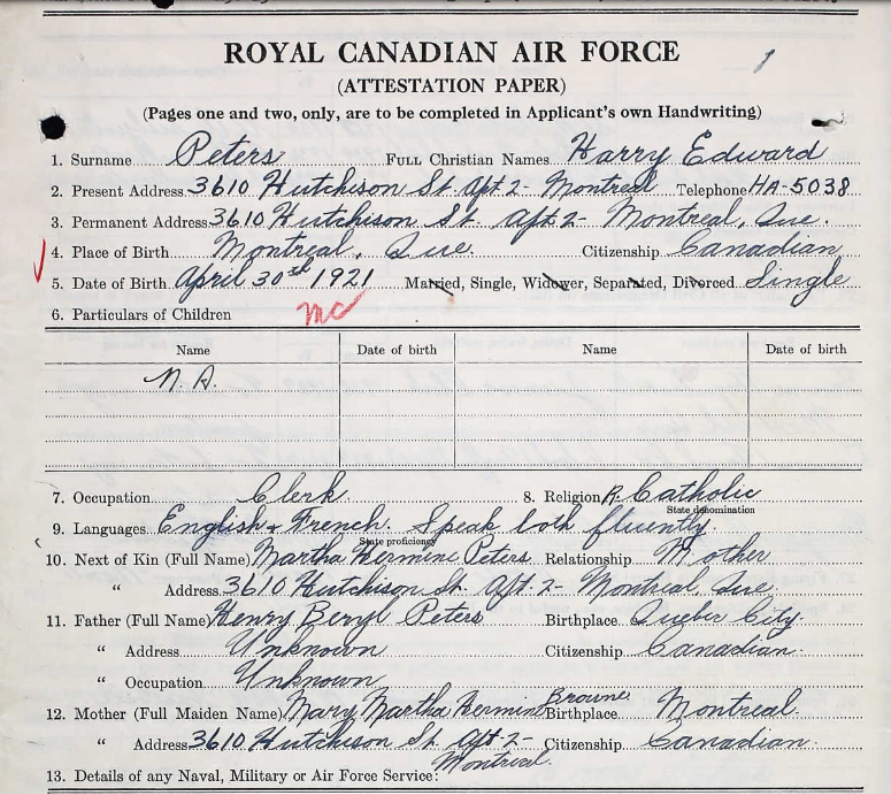 ROYAL CANADIAN AIR FORCE
(ATTESTATION PAPER)
(Pages one and two, only, are to be completed in Applicant's own Handwriting)
1. Surname Peters FULL Christian Names Harry Edward
2. Present Address 3610 Hutchison St. Apt. 2 - Montreal Telephone HA-5038
3. Permanent Address 3610 Hutchison St. Apt. 2 - Montreal, Que.
4. Place of Birth Montreal, Que. Citizenship Canadian
5. Date of Birth April 30th 1921 Married, Single, Widower, Separated, Divorced Single
6. Particulars of Children
Name Date of birth Name Date of birth
N.A.
7. Occupation Clerk 8. Religion R. Catholic
State denomination
9. Languages English + French. Speak both fluently.
State proficiency
10. Next of Kin (Full Name) Martha Hermine Peters Relationship Mother
" Address 3610 Hutchison St. Apt. 2 - Montreal Que
11. Father (Full Name) Henry Beryl Peters Birthplace Quebec City.
" Address Unknown Citizenship Canadian.
" Occupation Unknown
12. Mother (Full Maiden Name) Mary Martha Hermine Browne Birthplace Montreal.
" Address 3610 Hutchison St. Apt. 2 - Montreal. Citizenship Canadian.
13. Details of any Naval, Military or Air Force Service: